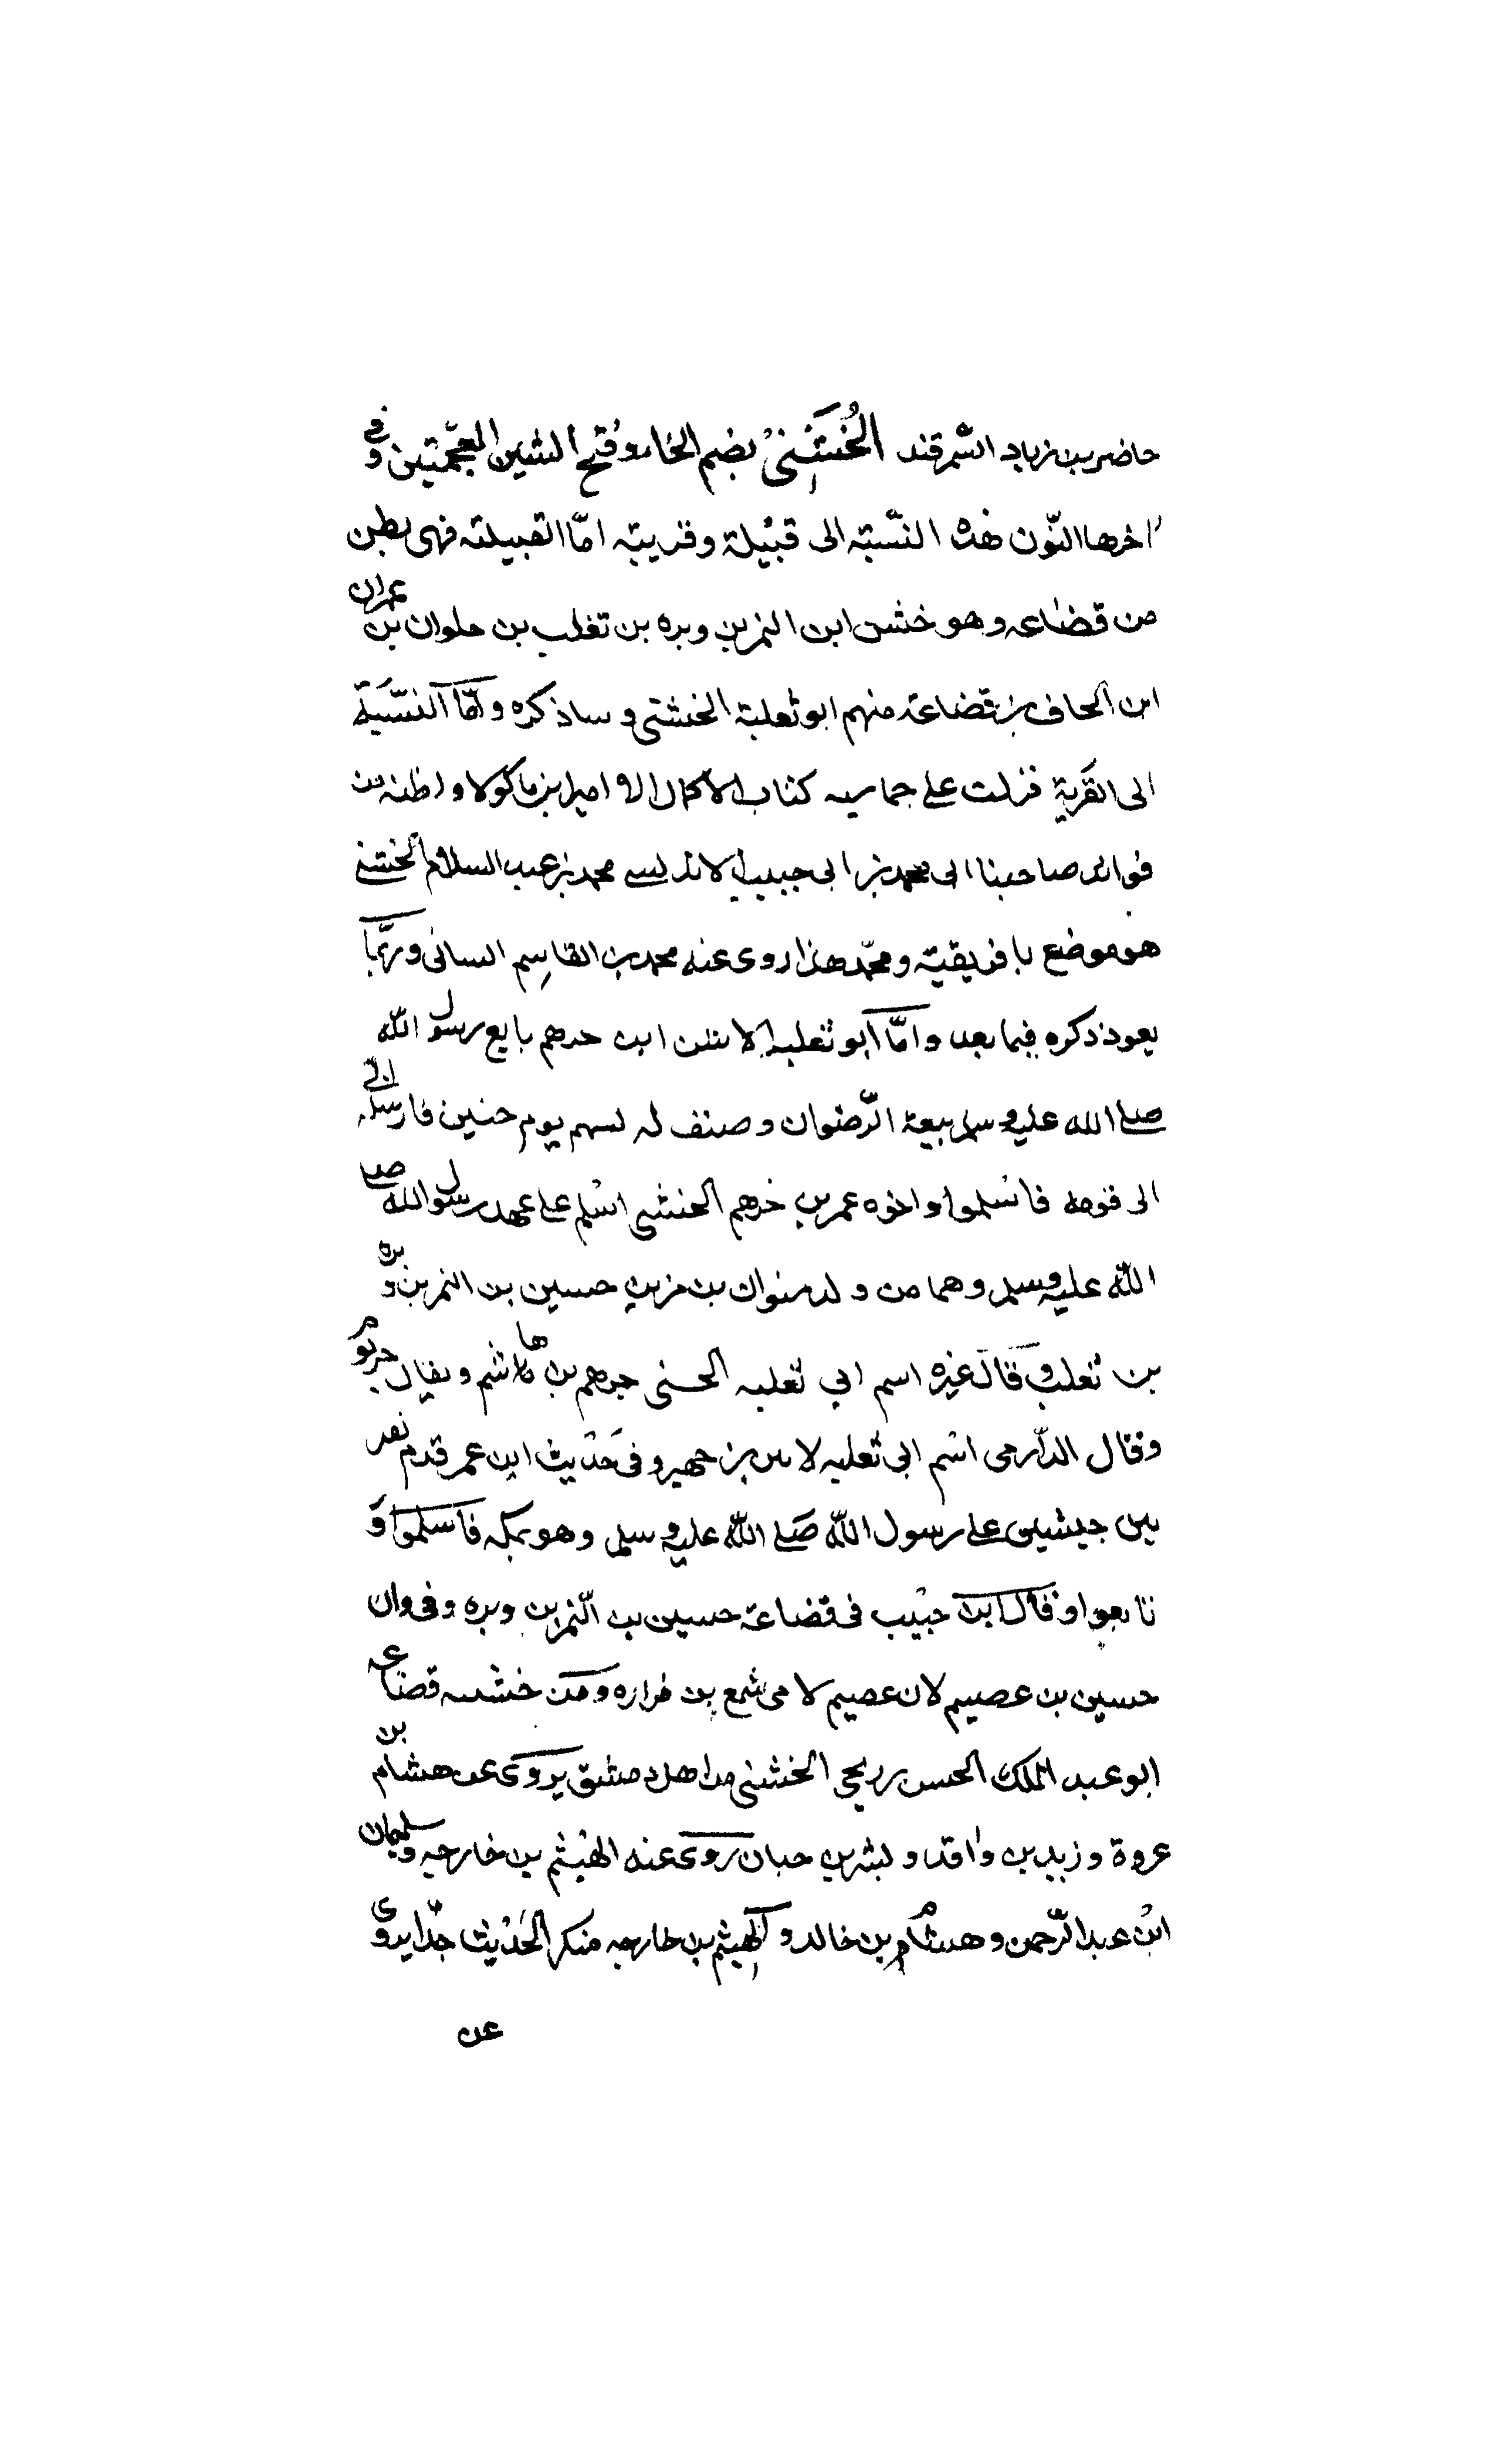 حاضر بن زياد السّمرقند الخُشَنىْ بضم الخاء وفتح الشين المعجّمتين وفي
اخرها النّون هذه النّسبته الى قبيلة وقريته امّا القبيلته فهى بطن
من قضاعه وهو خشن ابن النمر بن وبره بن تغلب بن حلوان بن عمران
ابن الحاف بن قضاعة منهم ابو ثعلبة الخشنى وساذكره وامّا النسّبة
الى القرية فزلت على كتاب الاكمال الامير بن ماكولا واظنه من
فوائد صاحبنا ابى محمد بن ابى حبيب الاندلسے محمد بن عبد السلام الخشنے
هو موضع بافريقيّه ومحمّد هذا روى عنه محمد بن القاسم السانى وربّما
يعود ذكره فيما بعد وامّا ابو ثعلبه الاشن ابن جرهم بايع رسول اللّه
صلے الله عليه وسلم بيعة الرّضوان وصنف له لسهم يوم حنين فارسله
الى قومه فاسلموا واخوه عمر بن خرهم الخشنى اسْلم على عهد رسول اللّه صلے
اللّه عليه وسلم وهما من ولد بن مر بن حسين بن النمر بن وبره
بن تغلب وقال غيره اسم ابي ثعلبه الحسنى جرهم بن هاشم ويقال جرثوم
وقال الدّارمى اسْم ابى ثعلبه لاس بن حهير وفى حَدْيث ابن عمر قدم نفر
بين جيشين على رسول اللّه صَلے اللّه عليه وسلم وهو بمكه فاسلموا وَ
تابعوا وقال ابن حبْيب فى قضاعة حسين بن النّمر بن وبره وفى وان
حسين بن عصيم لان عصيم لامى شمع بن فزاره ومن خشنه قضاعه
ابو عبد الملك الحسن بن يحيى الخشنى من اهل دمشق يروى عن هشام بن
عروة وزيد بن واقد وبشر بن حبان روى عنه الهيْثم بن خارجه وسليمان
ابن عبد الرّحمن وهشام بن خالد والهيثم بن خارجه منكر الحَديث جدّا يروى
عن